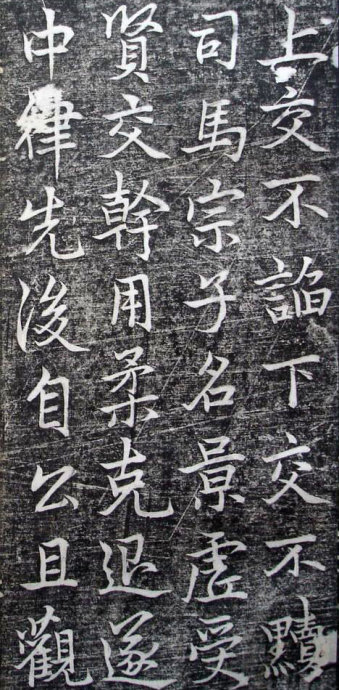 上交不諂下交不黷
司馬宗子名景虛受
賢交幹用柔克退遂
中律先後自公且觀